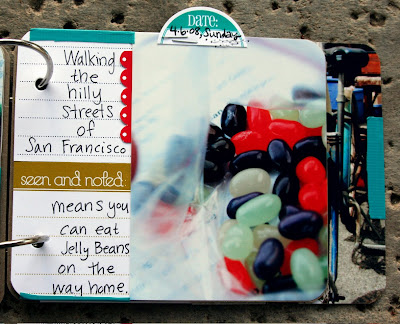 DATE:
4.6.08, Sunday
Walking
the
hilly
streets
of
San Francisco
seen and noted:
means you
can eat
Jelly Beans
on the
way home.